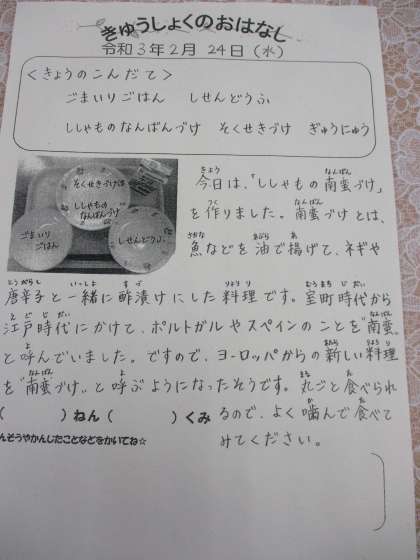 きゅうしょくのおはなし
令和3年2月 24日(水)
<きょうのこんだて>
ごまいりごはん しせんどうふ
ししゃものなんばんづけ そくせきづけ ぎゅうにゅう
そくせきづけ
ししゃもの
なんばんづけ
ごまいり
ごはん
しせんどうふ
今日は、「ししゃもの南蛮づけ」
を作りました。南蛮づけとは、
魚などを油で揚げて、ネギや
唐辛子と一緒に酢漬けにした料理です。室町時代から
江戸時代にかけて、ポルトガルやスペインのことを"南蛮"
と呼んでいました。ですので、ヨーロッパからの新しい料理
を"南蛮づけ"と呼ぶようになったそうです。丸ごと食べられ
るので、よく噛んで食べて
みてください。
( )ねん( )くみ
んそうやかんしたことなどをかいてね☆